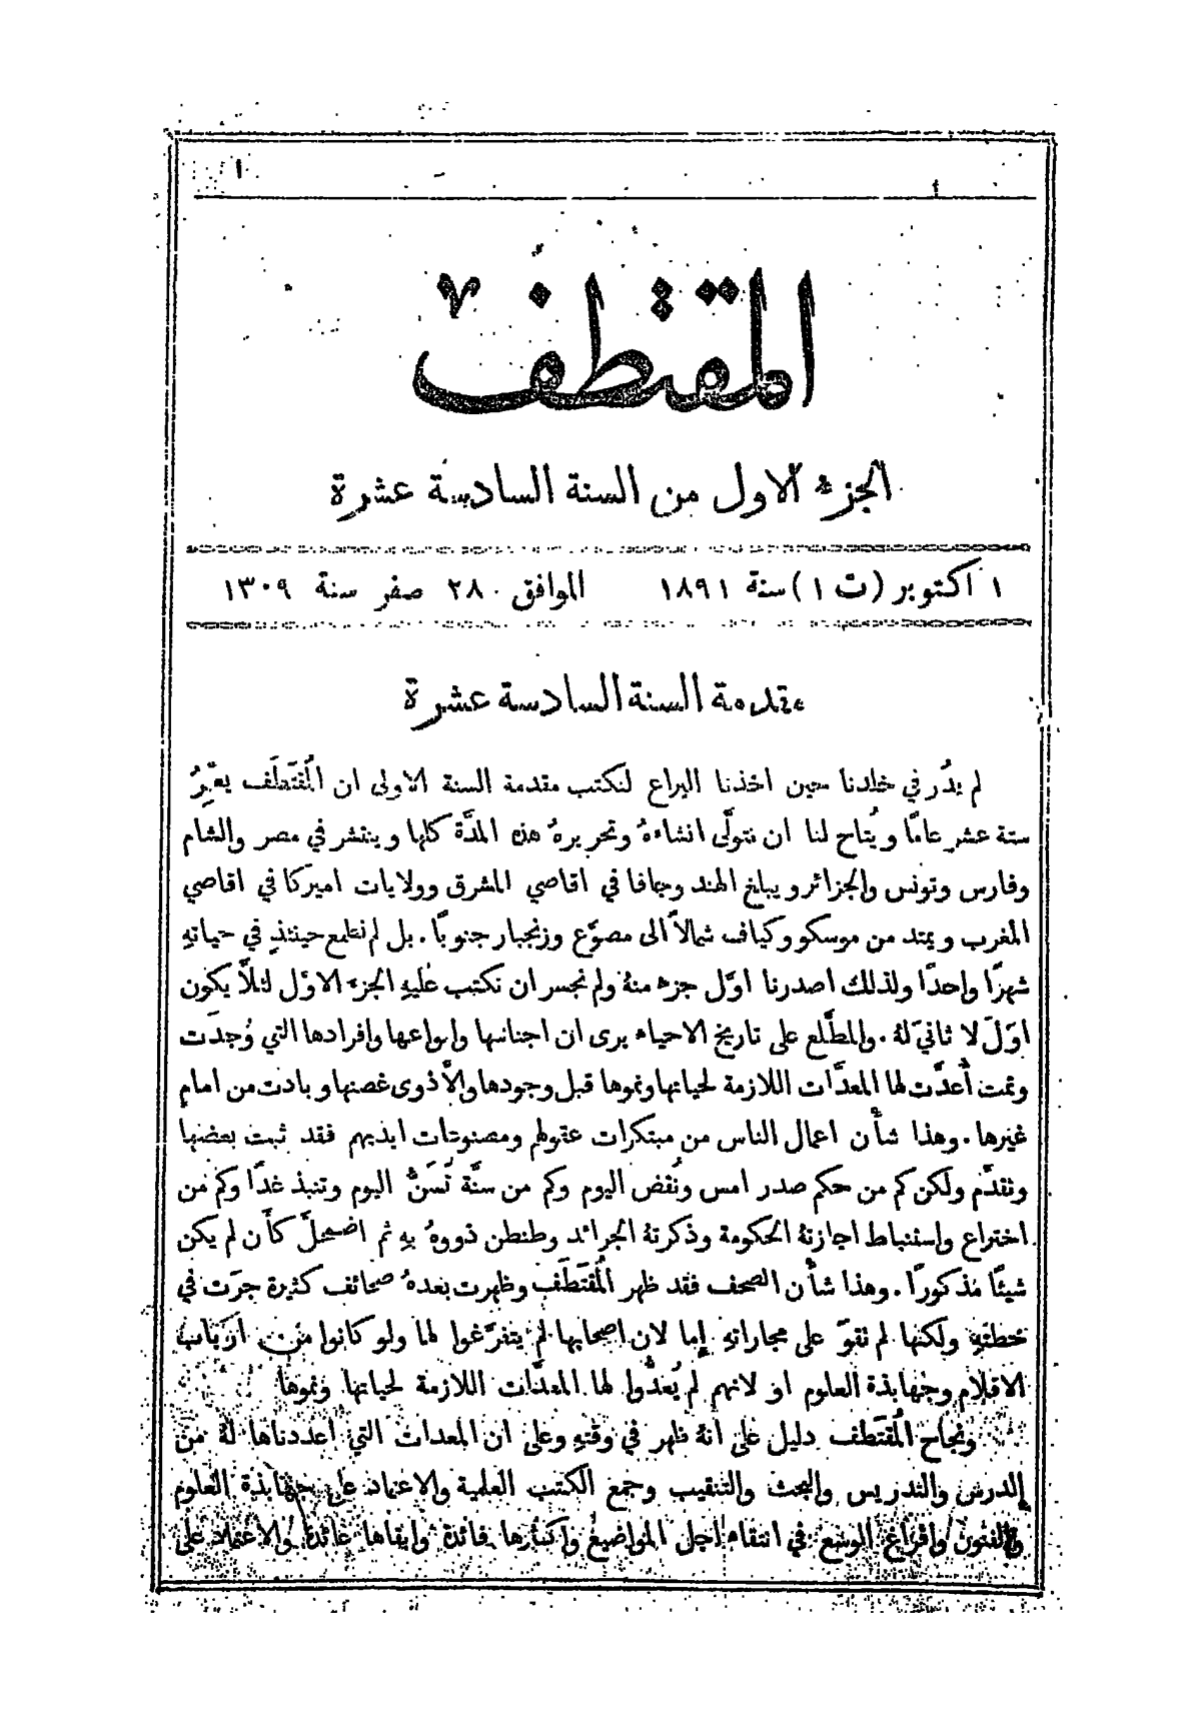 ١
المقتطف
الجزء الاول من السنة السادسة عشرة
١ اكتوبر (ت ١) سنة ١٨٩١ الموافق ٢٨ صفر سنة ١٣٠٩
مقدمة السنة السادسة عشرة
لم يدُر في خلدنا حين اخذنا اليراع لنكتب مقدمة السنة الاولى ان المُقتَطَف يعمِّرُ
ستة عشر عامًا ويُتاح لنا ان نتولَّى انشاءهُ وتحريرهُ هذه المدَّة كلها وينتشر في مصر والشام
وفارس وتونس والجزائر ويبلغ الهند وجافا في اقاصي المشرق وولايات اميركا في اقاصي
المغرب ويمتد من موسكو وكياف شمالاً الى مصوَّع وزنجبار جنوبًا. بل لم نطمع حينئذٍ في حياتهِ
شهرًا واحدًا ولذلك اصدرنا اوَّل جزء منهُ ولم نجسر ان نكتب عليهِ الجزء الاوَّل لئلاَّ يكون
اوَّلَ لا ثانيَ لهُ. والمطَّلع على تاريخ الاحياء يرى ان اجناسها وانواعها وافرادها التي وُجدَت
ونمت أُعدَّت لها المعدَّات اللازمة لحياتها ونموها قبل وجودها والاَّ ذوى غصنها وبادت من امام
غيرها. وهذا شأن اعمال الناس من مبتكرات عقولهم ومصنوعات ايديهم فقد ثبت بعضها
وتقدَّم ولكن كم من حكم صدر امس ونُقض اليوم وكم من سنَّة تُسَنُّ اليوم وتنبذ غدًا وكم من
اختراع واستنباط اجازتهُ الحكومة وذكرتهُ الجرائد وطنطن ذووهُ بهِ ثم اضمحلَّ كأن لم يكن
شيئًا مذكورًا. وهذا شأن الصحف فقد ظهر المُقتَطَف وظهرت بعدهُ صحائف كثيرة جرَت في
خطتهِ ولكنها لم تقوَ على مجاراتهِ إِما لان اصحابها لم يتفرَّغوا لها ولو كانوا من ارباب
الاقلام وجهابذة العلوم او لانهم لم يُعدُّوا لها المعدَّات اللازمة لحياتها ونموها
ونجاح المُقتَطَف دليل على انهُ ظهر في وقتهِ وعلى ان المعدات التي اعددناها لهُ من
الدرس والتدريس والبحث والتنقيب وجمع الكتب العلمية والاعتماد على جهابذة العلوم
والفنون وافراغ الوسع في انتقاء اجل المواضيع واكثرها فائدة وابقاها عائدة والاعتماد على